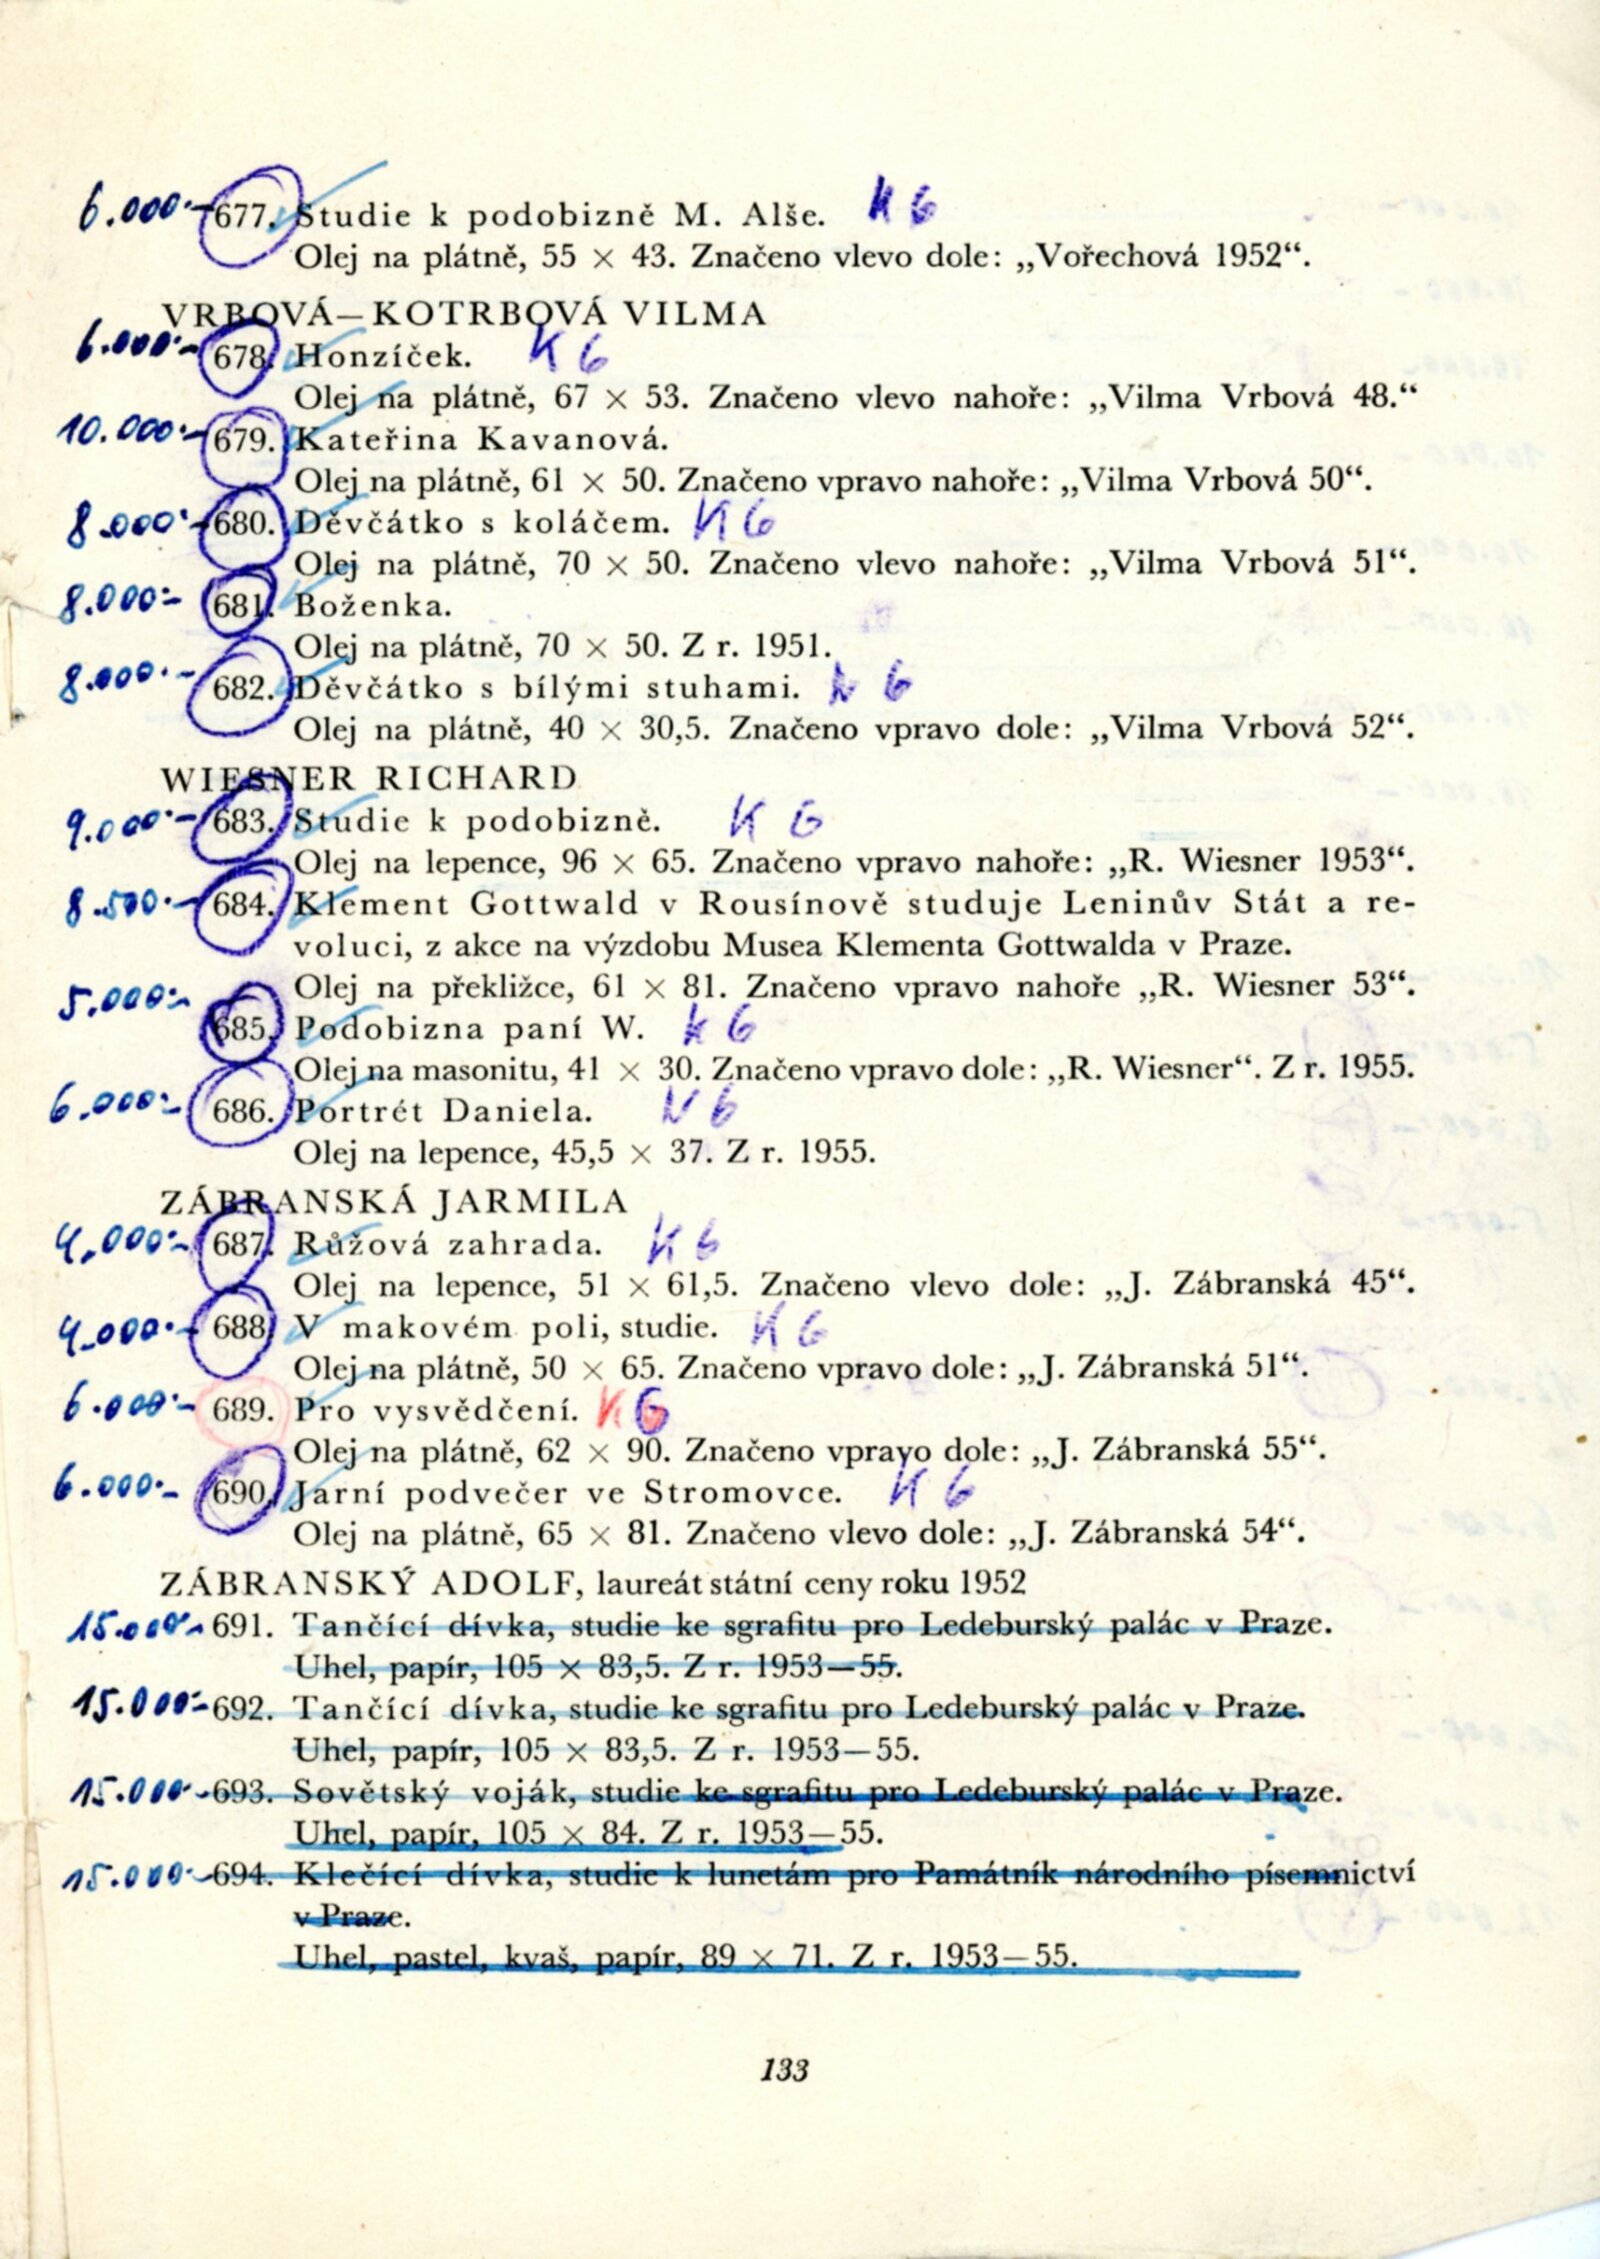 6.000.- 677. Studie k podobizně M. Alše. K G
Olej na plátně, 55 × 43. Značeno vlevo dole: „Vořechová 1952“.
VRBOVÁ—KOTRBOVÁ VILMA
6.000.- 678. Honzíček. K G
Olej na plátně, 67 × 53. Značeno vlevo nahoře: „Vilma Vrbová 48.“
10.000.- 679. Kateřina Kavanová.
Olej na plátně, 61 × 50. Značeno vpravo nahoře: „Vilma Vrbová 50“.
8.000.- 680. Děvčátko s koláčem. K G
Olej na plátně, 70 × 50. Značeno vlevo nahoře: „Vilma Vrbová 51“.
8.000.- 681. Boženka.
Olej na plátně, 70 × 50. Z r. 1951.
8.000.- 682. Děvčátko s bílými stuhami. K G
Olej na plátně, 40 × 30,5. Značeno vpravo dole: „Vilma Vrbová 52“.
WIESNER RICHARD
9.000.- 683. Studie k podobizně. K G
Olej na lepence, 96 × 65. Značeno vpravo nahoře: „R. Wiesner 1953“.
8.500.- 684. Klement Gottwald v Rousínově studuje Leninův Stát a re-
voluci, z akce na výzdobu Musea Klementa Gottwalda v Praze.
Olej na překližce, 61 × 81. Značeno vpravo nahoře „R. Wiesner 53“.
5.000.- 685. Podobizna paní W. K G
Olej na masonitu, 41 × 30. Značeno vpravo dole: „R. Wiesner“. Z r. 1955.
6.000.- 686. Portrét Daniela. K G
Olej na lepence, 45,5 × 37. Z r. 1955.
ZÁBRANSKÁ JARMILA
4.000.- 687. Růžová zahrada. K G
Olej na lepence, 51 × 61,5. Značeno vlevo dole: „J. Zábranská 45“.
4.000.- 688. V makovém poli, studie. K G
Olej na plátně, 50 × 65. Značeno vpravo dole: „J. Zábranská 51“.
6.000.- 689. Pro vysvědčení. K G
Olej na plátně, 62 × 90. Značeno vpravo dole: „J. Zábranská 55“.
6.000.- 690. Jarní podvečer ve Stromovce. K G
Olej na plátně, 65 × 81. Značeno vlevo dole: „J. Zábranská 54“.
ZÁBRANSKÝ ADOLF, laureát státní ceny roku 1952
15.000.- 691. Tančící dívka, studie ke sgrafitu pro Ledeburský palác v Praze.
Uhel, papír, 105 × 83,5. Z r. 1953—55.
15.000.- 692. Tančící dívka, studie ke sgrafitu pro Ledeburský palác v Praze.
Uhel, papír, 105 × 83,5. Z r. 1953—55.
15.000.- 693. Sovětský voják, studie ke sgrafitu pro Ledeburský palác v Praze.
Uhel, papír, 105 × 84. Z r. 1953—55.
15.000.- 694. Klečící dívka, studie k lunetám pro Památník národního písemnictví
v Praze.
Uhel, pastel, kvaš, papír, 89 × 71. Z r. 1953—55.
133